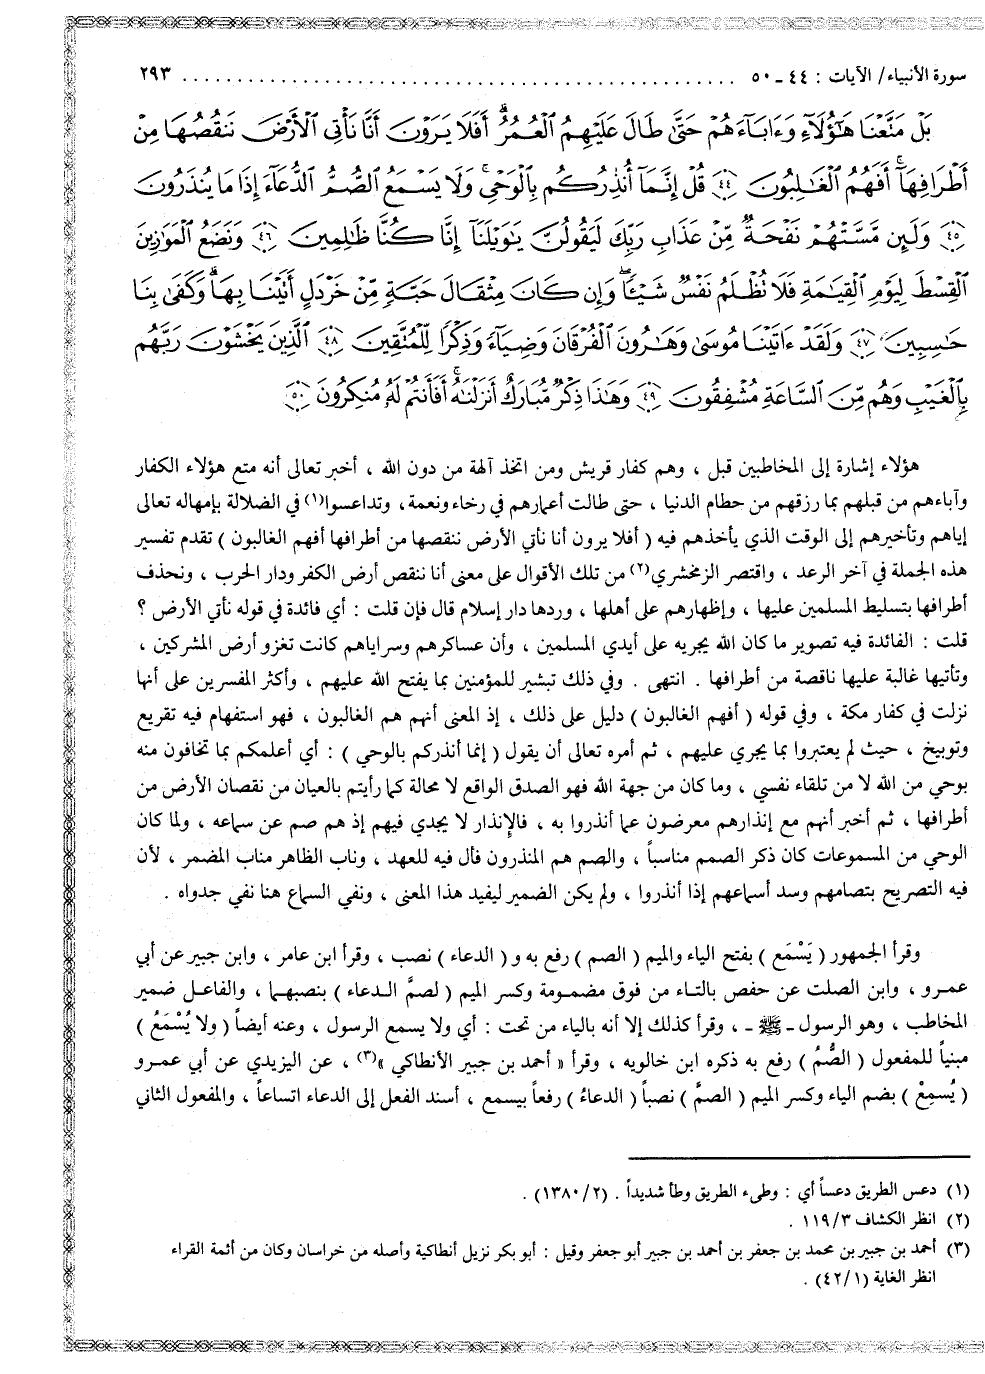 سورة الأنبياء/ الآيات : ٤٤ ـ ٥٠ ........................................................ ٢٩٣
بَلْ مَتَّعْنَا هَٰٓؤُلَآءِ وَءَابَآءَهُمْ حَتَّىٰ طَالَ عَلَيْهِمُ ٱلْعُمُرُ ۗ أَفَلَا يَرَوْنَ أَنَّا نَأْتِى ٱلْأَرْضَ نَنقُصُهَا مِنْ
أَطْرَافِهَآ ۚ أَفَهُمُ ٱلْغَٰلِبُونَ ﴿٤٤﴾ قُلْ إِنَّمَآ أُنذِرُكُم بِٱلْوَحْىِ ۚ وَلَا يَسْمَعُ ٱلصُّمُّ ٱلدُّعَآءَ إِذَا مَا يُنذَرُونَ
﴿٤٥﴾ وَلَئِن مَّسَّتْهُمْ نَفْحَةٌ مِّنْ عَذَابِ رَبِّكَ لَيَقُولُنَّ يَٰوَيْلَنَآ إِنَّا كُنَّا ظَٰلِمِينَ ﴿٤٦﴾ وَنَضَعُ ٱلْمَوَٰزِينَ
ٱلْقِسْطَ لِيَوْمِ ٱلْقِيَٰمَةِ فَلَا تُظْلَمُ نَفْسٌ شَيْـًٔا ۖ وَإِن كَانَ مِثْقَالَ حَبَّةٍ مِّنْ خَرْدَلٍ أَتَيْنَا بِهَا ۗ وَكَفَىٰ بِنَا
حَٰسِبِينَ ﴿٤٧﴾ وَلَقَدْ ءَاتَيْنَا مُوسَىٰ وَهَٰرُونَ ٱلْفُرْقَانَ وَضِيَآءً وَذِكْرًا لِّلْمُتَّقِينَ ﴿٤٨﴾ ٱلَّذِينَ يَخْشَوْنَ رَبَّهُم
بِٱلْغَيْبِ وَهُم مِّنَ ٱلسَّاعَةِ مُشْفِقُونَ ﴿٤٩﴾ وَهَٰذَا ذِكْرٌ مُّبَارَكٌ أَنزَلْنَٰهُ ۚ أَفَأَنتُمْ لَهُۥ مُنكِرُونَ ﴿٥٠﴾
هؤلاء إشارة إلى المخاطبين قبل ، وهم كفار قريش ومن اتخذ آلهة من دون الله ، أخبر تعالى أنه متع هؤلاء الكفار
وآباءهم من قبلهم بما رزقهم من حطام الدنيا ، حتى طالت أعمارهم في رخاء ونعمة، وتداعسوا(١) في الضلالة بإمهاله تعالى
إياهم وتأخيرهم إلى الوقت الذي يأخذهم فيه ( أفلا يرون أنا نأتي الأرض ننقصها من أطرافها أفهم الغالبون ) تقدم تفسير
هذه الجملة في آخر الرعد ، واقتصر الزمخشري(٢) من تلك الأقوال على معنى أنا ننقص أرض الكفر ودار الحرب ، ونحذف
أطرافها بتسليط المسلمين عليها ، وإظهارهم على أهلها ، وردها دار إسلام قال فإن قلت : أي فائدة في قوله نأتي الأرض ؟
قلت : الفائدة فيه تصوير ما كان الله يجريه على أيدي المسلمين ، وأن عساكرهم وسراياهم كانت تغزو أرض المشركين ،
وتأتيها غالبة عليها ناقصة من أطرافها . انتهى . وفي ذلك تبشير للمؤمنين بما يفتح الله عليهم ، وأكثر المفسرين على أنها
نزلت في كفار مكة ، وفي قوله ( أفهم الغالبون ) دليل على ذلك ، إذ المعنى أنهم هم الغالبون ، فهو استفهام فيه تقريع
وتوبيخ ، حيث لم يعتبروا بما يجري عليهم ، ثم أمره تعالى أن يقول ( إنما أنذركم بالوحي ) : أي أعلمكم بما تخافون منه
بوحي من الله لا من تلقاء نفسي ، وما كان من جهة الله فهو الصدق الواقع لا محالة كما رأيتم بالعيان من نقصان الأرض من
أطرافها ، ثم أخبر أنهم مع إنذارهم معرضون عما أنذروا به ، فالإنذار لا يجدي فيهم إذ هم صم عن سماعه ، ولما كان
الوحي من المسموعات كان ذكر الصمم مناسباً ، والصم هم المنذرون فأل فيه للعهد ، وناب الظاهر مناب المضمر ، لأن
فيه التصريح بتصامهم وسد أسماعهم إذا أنذروا ، ولم يكن الضمير ليفيد هذا المعنى ، ونفي السماع هنا نفي جدواه .
وقرأ الجمهور ( يَسْمَع ) بفتح الياء والميم ( الصم ) رفع به و ( الدعاء ) نصب ، وقرأ ابن عامر ، وابن جبير عن أبي
عمرو ، وابن الصلت عن حفص بالتاء من فوق مضمومة وكسر الميم ( لصمَّ الدعاء ) بنصبهما ، والفاعل ضمير
المخاطب ، وهو الرسول ـ ﷺ ـ ، وقرأ كذلك إلا أنه بالياء من تحت : أي ولا يسمع الرسول ، وعنه أيضاً ( ولا يُسْمَعُ )
مبنياً للمفعول ( الصُّمُ ) رفع به ذكره ابن خالويه ، وقرأ « أحمد بن جبير الأنطاكي »(٣) ، عن اليزيدي عن أبي عمرو
( يُسمِعُ ) بضم الياء وكسر الميم ( الصمَّ ) نصباً ( الدعاءُ ) رفعاً بيسمع ، أسند الفعل إلى الدعاء اتساعاً ، والمفعول الثاني
(١) دعس الطريق دعساً أي : وطىء الطريق وطأ شديداً . (١٣٨٠/٢) .
(٢) انظر الكشاف ١١٩/٣ .
(٣) أحمد بن جبير بن محمد بن جعفر بن أحمد بن جبير أبو جعفر وقيل : أبو بكر نزيل أنطاكية وأصله من خراسان وكان من أئمة القراء
انظر الغاية (٤٢/١) .